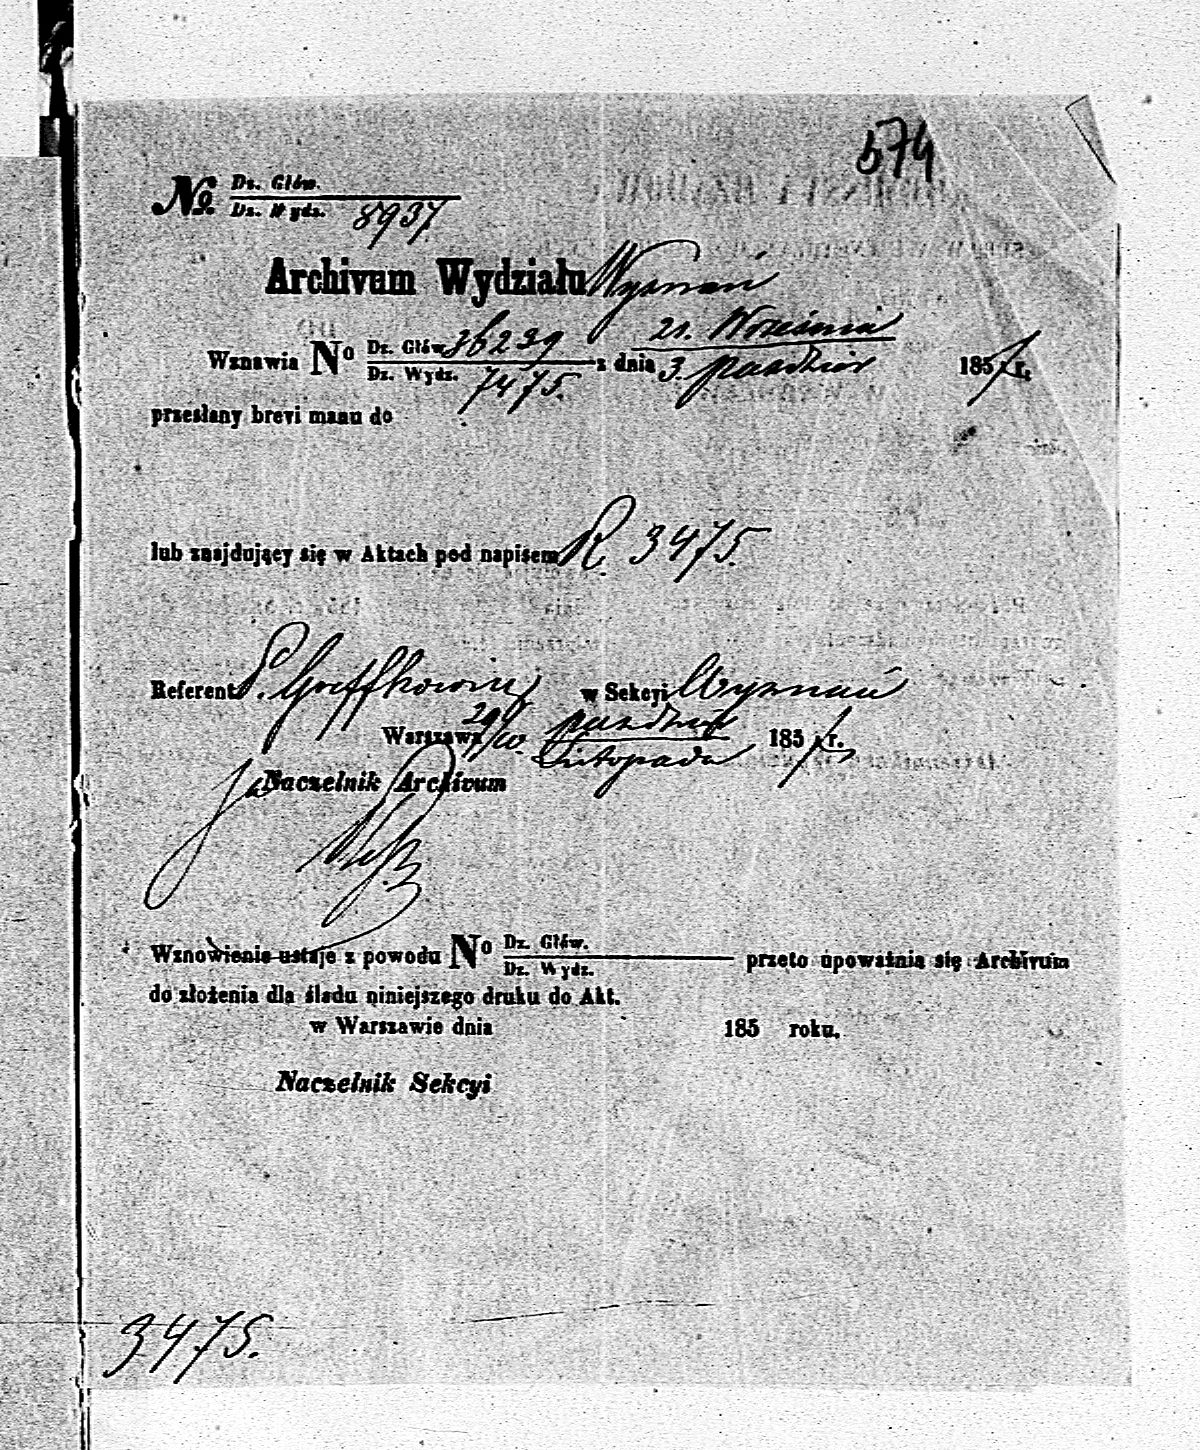 574
№ Dz. Głów.
Dz. Wydz. 8937
Archivum Wydziału Wyznań
Wznawia No Dz. Głów. 36239 z dnia 21. Września
Dz. Wydz. 7475. 3. paździer 1857 r.
przesłany brevi manu do
lub znajdujący się w Aktach pod napisem R. 3475.
Referent P. w Sekcyi Wyznań
Warszawa 29/10. paździer
Listopada 1857 r.
Naczelnik Archivum
Wznowienie ustaje z powodu No Dz. Głów.
Dz. Wydz. przeto upoważnia się Archivum
do złożenia dla śladu niniejszego druku do Akt.
w Warszawie dnia 185 roku.
Naczelnik Sekcyi
3475.